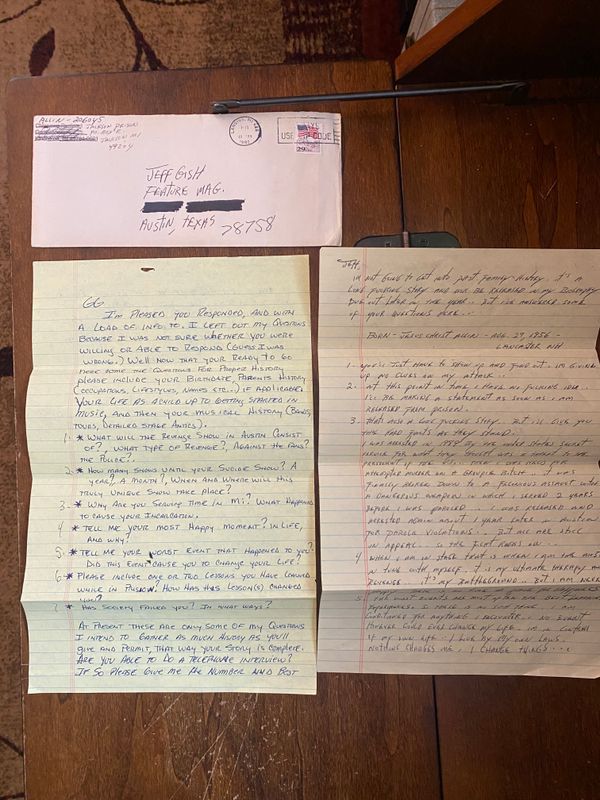 ALLIN - 206045
JACKSON PRISON
P.O. BOX E
JACKSON MI
49204
USE ZIP CODE
29
JEFF GISH
FEATURE MAG.
AUSTIN, TEXAS 78758
GG
I'M PLEASED YOU RESPONDED, AND WITH
A LOAD OF INFO. TO. I LEFT OUT MY QUESTIONS
BECAUSE I WAS NOT SURE WHETHER YOU WERE
WILLING OR ABLE TO RESPOND (GUESS I WAS
WRONG.) WELL NOW THAT YOUR READY TO GO
HERE SOME THE QUESTIONS FOR PROPER HISTORY
PLEASE INCLUDE YOUR BIRTHDATE, PARENTS HISTORY
(OCCUPATIONS, LIFESTYLES, NAMES ETC..) IF APPLICABLE,
YOUR LIFE AS A CHILD UP TO GETTING STARTED IN
MUSIC, AND THEN YOUR MUSICAL HISTORY (BANDS,
TOURS, DETAILED STAGE ANTICS).
1. * WHAT WILL THE REVENGE SHOW IN AUSTIN CONSIST
OF?, WHAT TYPE OF REVENGE?, AGAINST THE FANS?
THE POLICE?.
2. * HOW MANY SHOWS UNTIL YOUR SUICIDE SHOW? A
YEAR?, A MONTH?, WHEN AND WHERE WILL THIS
TRULY UNIQUE SHOW TAKE PLACE?
3 * WHY ARE YOU SERVING TIME IN MI.? WHAT HAPPENED
TO CAUSE YOUR INCARATION.
4 * TELL ME YOUR MOST HAPPY MOMENT? IN LIFE,
AND WHY?
5. * TELL ME YOUR WORST EVENT THAT HAPPENED TO YOU?
DID THIS EVENT CAUSE YOU TO CHANGE YOUR LIFE?
6 * PLEASE INCLUDE ONE OR TWO LESSONS YOU HAVE LEARNED
WHILE IN PRISON, HOW HAS THIS LESSON(S) CHANGED
YOU?
7 * HAS SOCIETY FAILED YOU? IN WHAT WAYS?
AT PRESENT THESE ARE ONLY SOME OF MY QUESTIONS
I INTEND TO GATHER AS MUCH HISTORY AS YOU'LL
GIVE AND PERMIT, THAT WAY YOUR STORY IS COMPLETE.
ARE YOU ABLE TO DO A TELEPHONE INTERVIEW?
IF SO PLEASE GIVE ME THE NUMBER AND BEST
JEFF,
IM NOT GOING TO GET INTO PAST FAMILY HISTORY. IT'S A
LONG FUCKING STORY AND WILL BE RELEASED IN MY BIOGRAPHY
DUE OUT LATER IN THE YEAR.. BUT I'VE ANSWERED SOME
OF YOUR QUESTIONS HERE..
BORN - JESUS CHRIST ALLIN - AUG. 29, 1956 -
LANCASTER NH
1 - YOU'LL JUST HAVE TO SHOW UP AND FIND OUT. IM GIVING
UP NO CLUES ON MY ATTACK...
2. AT THIS POINT IN TIME I HAVE NO FUCKING IDEA..
I'LL BE MAKING A STATEMENT AS SOON AS I AM
RELEASED FROM PRISON.
3 - THAT ALSO A LONG FUCKING STORY. BUT ILL GIVE YOU
THE HARD FACTS AS THEY STAND..
I WAS ARRESTED IN 1989 BY THE UNITED STATES SECRET
SERVICE FOR WHAT THEY THOUGHT WAS A THREAT TO THE
PRESIDENT OF THE U.S.. THEN I WAS HELD FOR
ATTEMPTED MURDER ON A GROUPIE BITCH.. I WAS
FINALLY BROKEN DOWN TO A FELONIOUS ASSAULT WITH
A DANGEROUS WEAPON IN WHICH I SERVED 2 YEARS
BEFORE I WAS PAROLED.... I WAS RELEASED AND
ARRESTED AGAIN ABOUT 1 YEAR LATER IN AUSTIN
FOR PAROLE VIOLATIONS.. BUT ALL ARE STILL
ON APPEAL..
4 WHEN I AM ON STAGE THAT IS WHEN I AM THE MOST
IN TUNE WITH MYSELF. IT IS MY ULTIMATE THERAPY AND
REVENGE.. IT'S MY BATTLEGROUND..
5
I AM
I AM IN CONTROL
OF MY OWN LIFE - I LIVE BY MY OWN LAWS.
NOTHING CHANGES ME, I CHANGE THINGS...